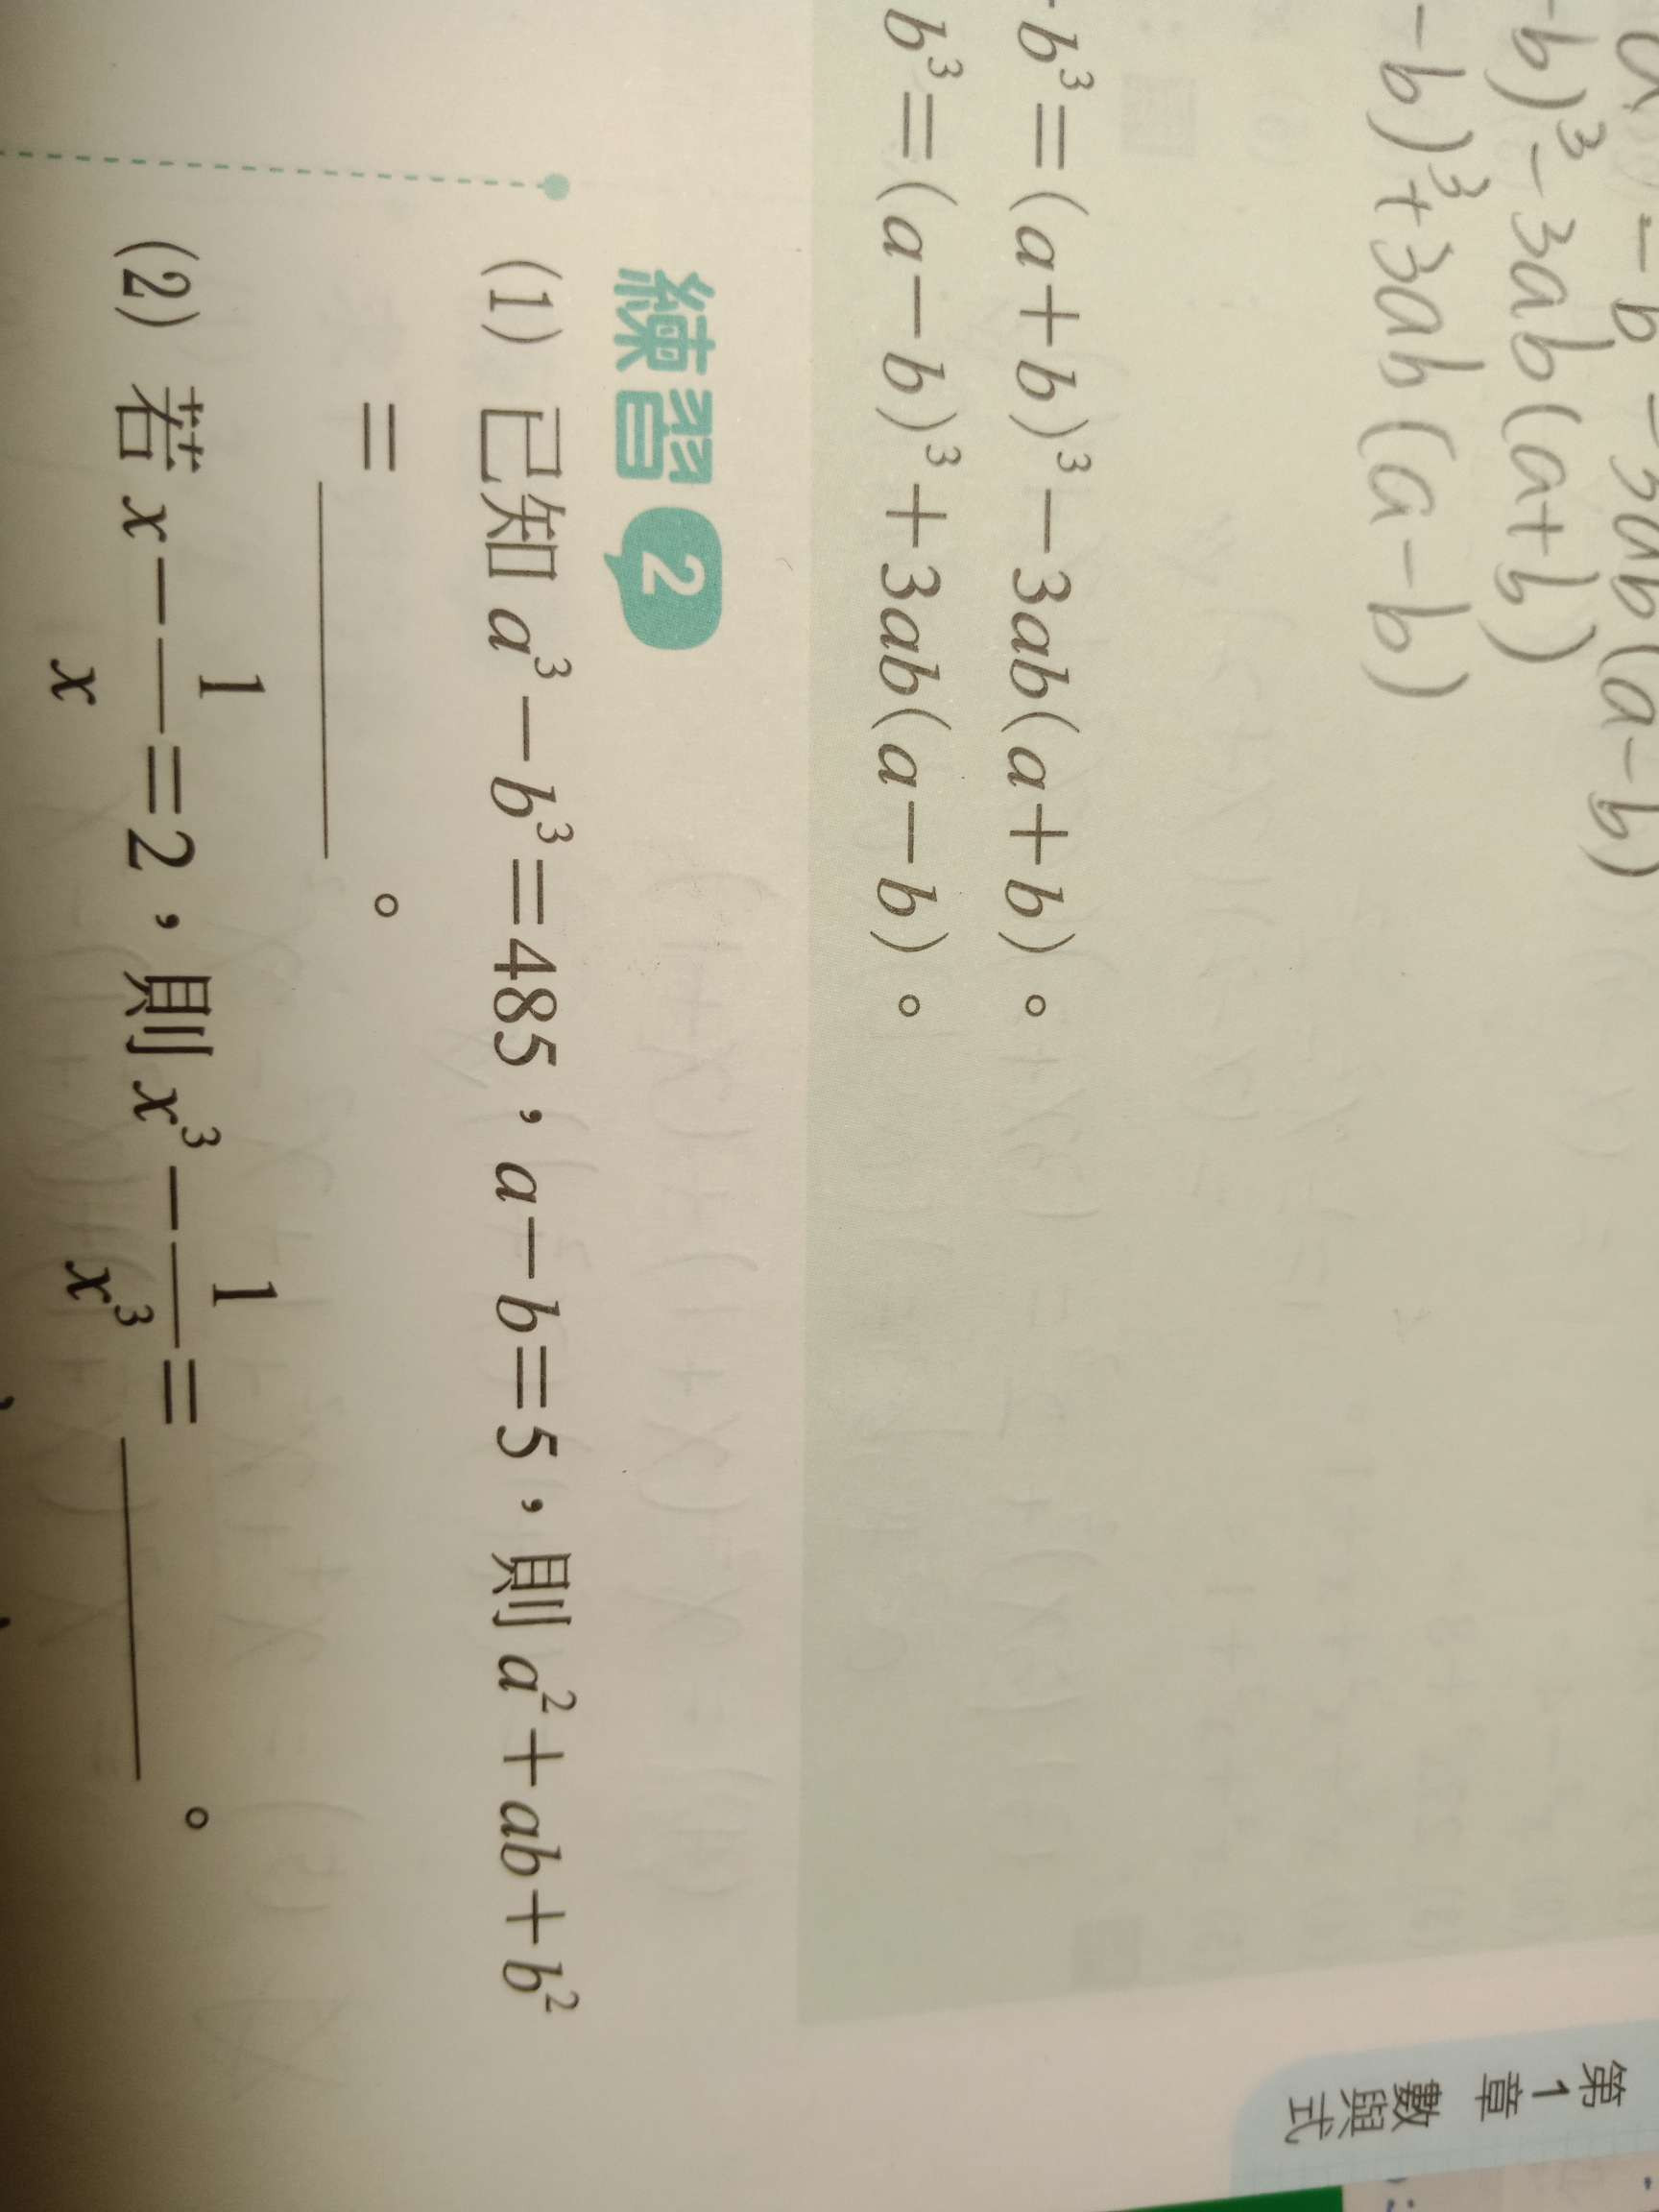 -b=3ab(a-b)
-b)³-3ab(a+b)
-b)³+3ab(a-b)
b³=(a+b)³-3ab(a+b)。
b³=(a-b)³+3ab(a-b)。
練習2
(1) 已知 a³-b³=485,a-b=5,則 a²+ab+b²
=________。
(2) 若 x-1/x=2,則 x³-1/x³=________。
第1章 數與式